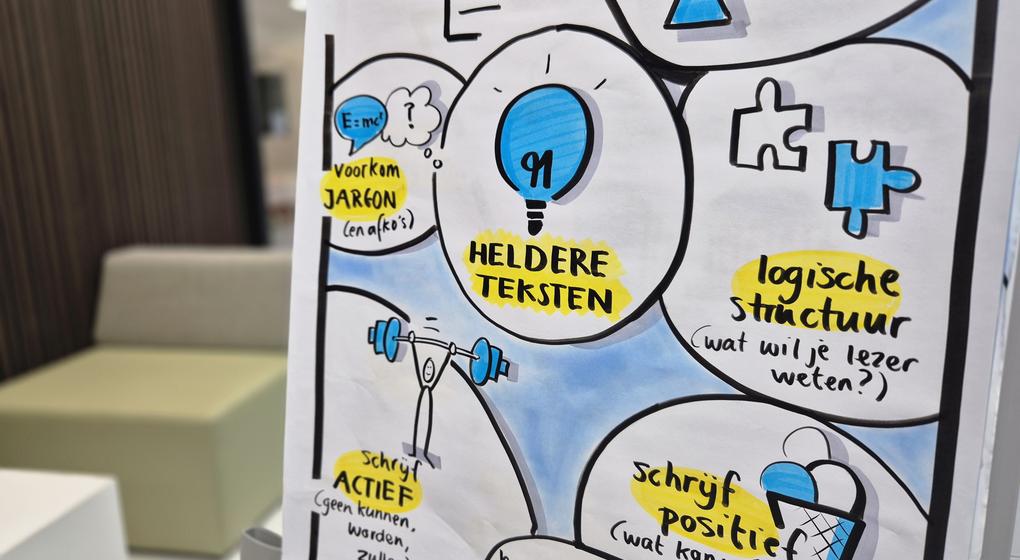 E=mc²
?
voorkom
JARGON
(en afko's)
HELDERE
TEKSTEN
logische
structuur
(wat wil je lezer
weten?)
schrijf
ACTIEF
(geen kunnen,
worden,
schrijf
positief
(wat kan